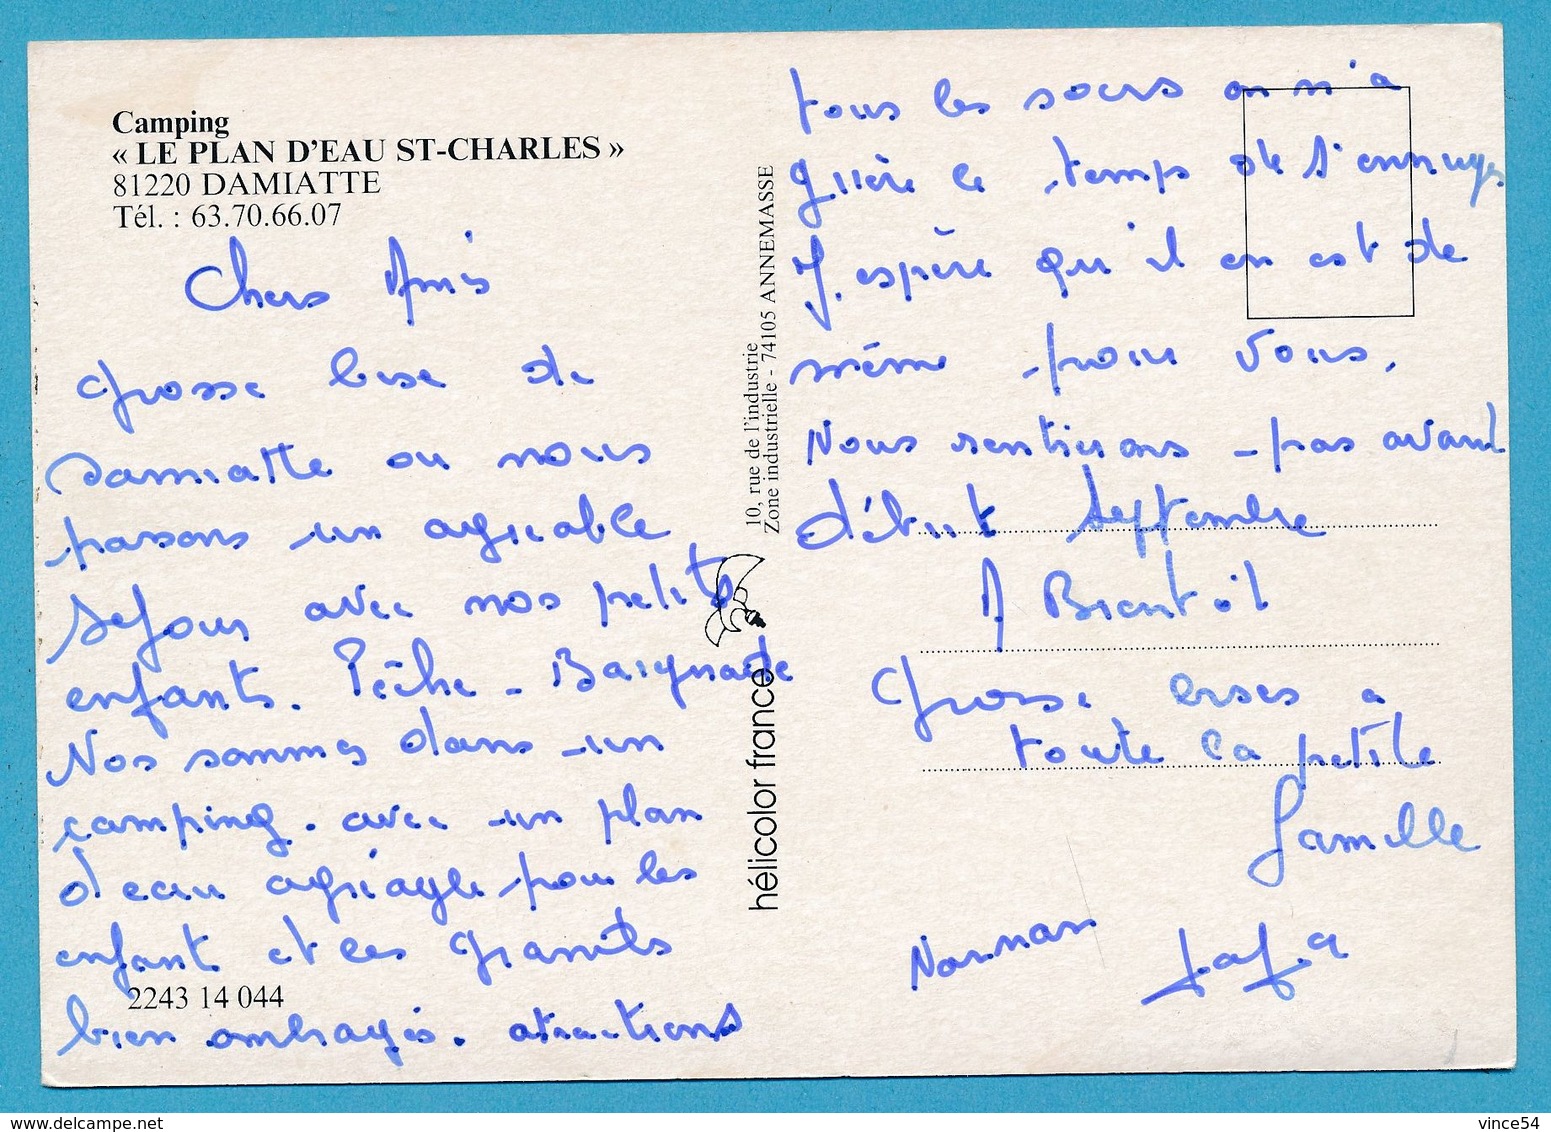 Camping
« LE PLAN D'EAU ST-CHARLES »
81220 DAMIATTE
Tél. : 63.70.66.07
Chers Amis
Grosse bise de
Damiatte ou nous
passons un agréable
séjour avec nos petits
enfants. Pêche - Baignade
Nos sommes dans un
camping. avec un plan
d'eau agréagle pour les
enfants et les grands
bien ombragés. atractions
2243 14 044
10, rue de l'industrie
Zone industrielle - 74105 ANNEMASSE
hélicolor france
tous les soirs on n'a
guère le temps de s'ennuyer
J'espère qu'il en est de
même pour vous.
Nous rentrerons pas avant
début septembre
A Bientôt
Grosse bises a
toute la petite
famille
delcampe.net
vince54